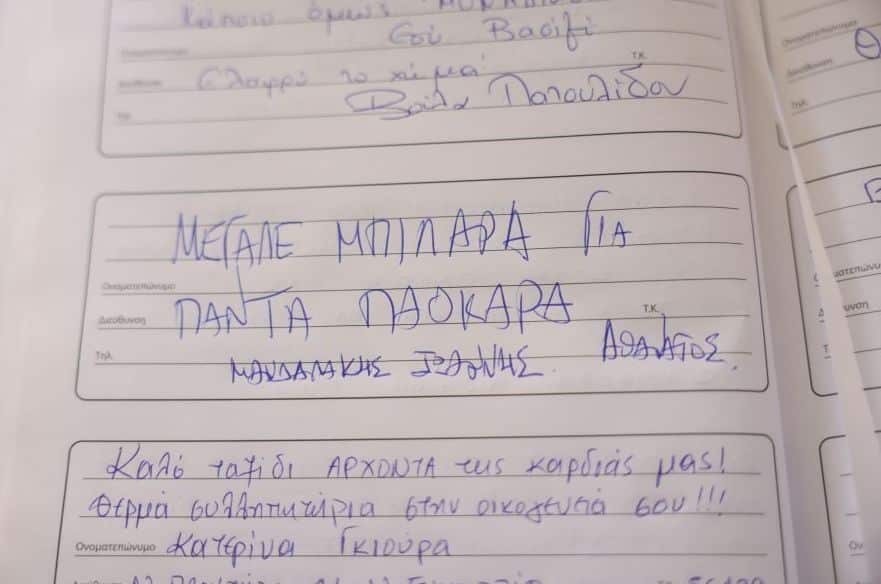 Κάποιο όμως
Εσύ Βασίλη
Ονοματεπώνυμο
Τ.Κ.
Διεύθυνση Ελαφρύ το χώμα!
Τηλ. Βούλα Παπουλίδου
ΜΕΓΑΛΕ ΜΠΙΛΑΡΑ ΓΙΑ
Ονοματεπώνυμο
Διεύθυνση ΠΑΝΤΑ ΠΑΟΚΑΡΑ Τ.Κ.
Τηλ. ΜΑΝΔΑΛΑΚΗΣ ΙΩΑΝΝΗΣ. ΑΘΑΝΑΤΟΣ.
Καλό ταξίδι ΑΡΧΟΝΤΑ της καρδιάς μας!
Θερμά συλληπητήρια στην οικογένειά σου!!!
Ονοματεπώνυμο Κατερίνα Γκιούρα
Ονοματεπώνυμο
Διεύθυνση
Τηλ.